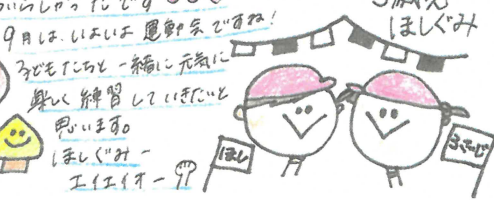 いらしゃったです
9月は、いよいよ運動会ですね!
子どもたちと一緒に元気に
楽しく練習していきたいと
思います。
ほしぐみー
エイエイオー
ほしぐみ
ほし